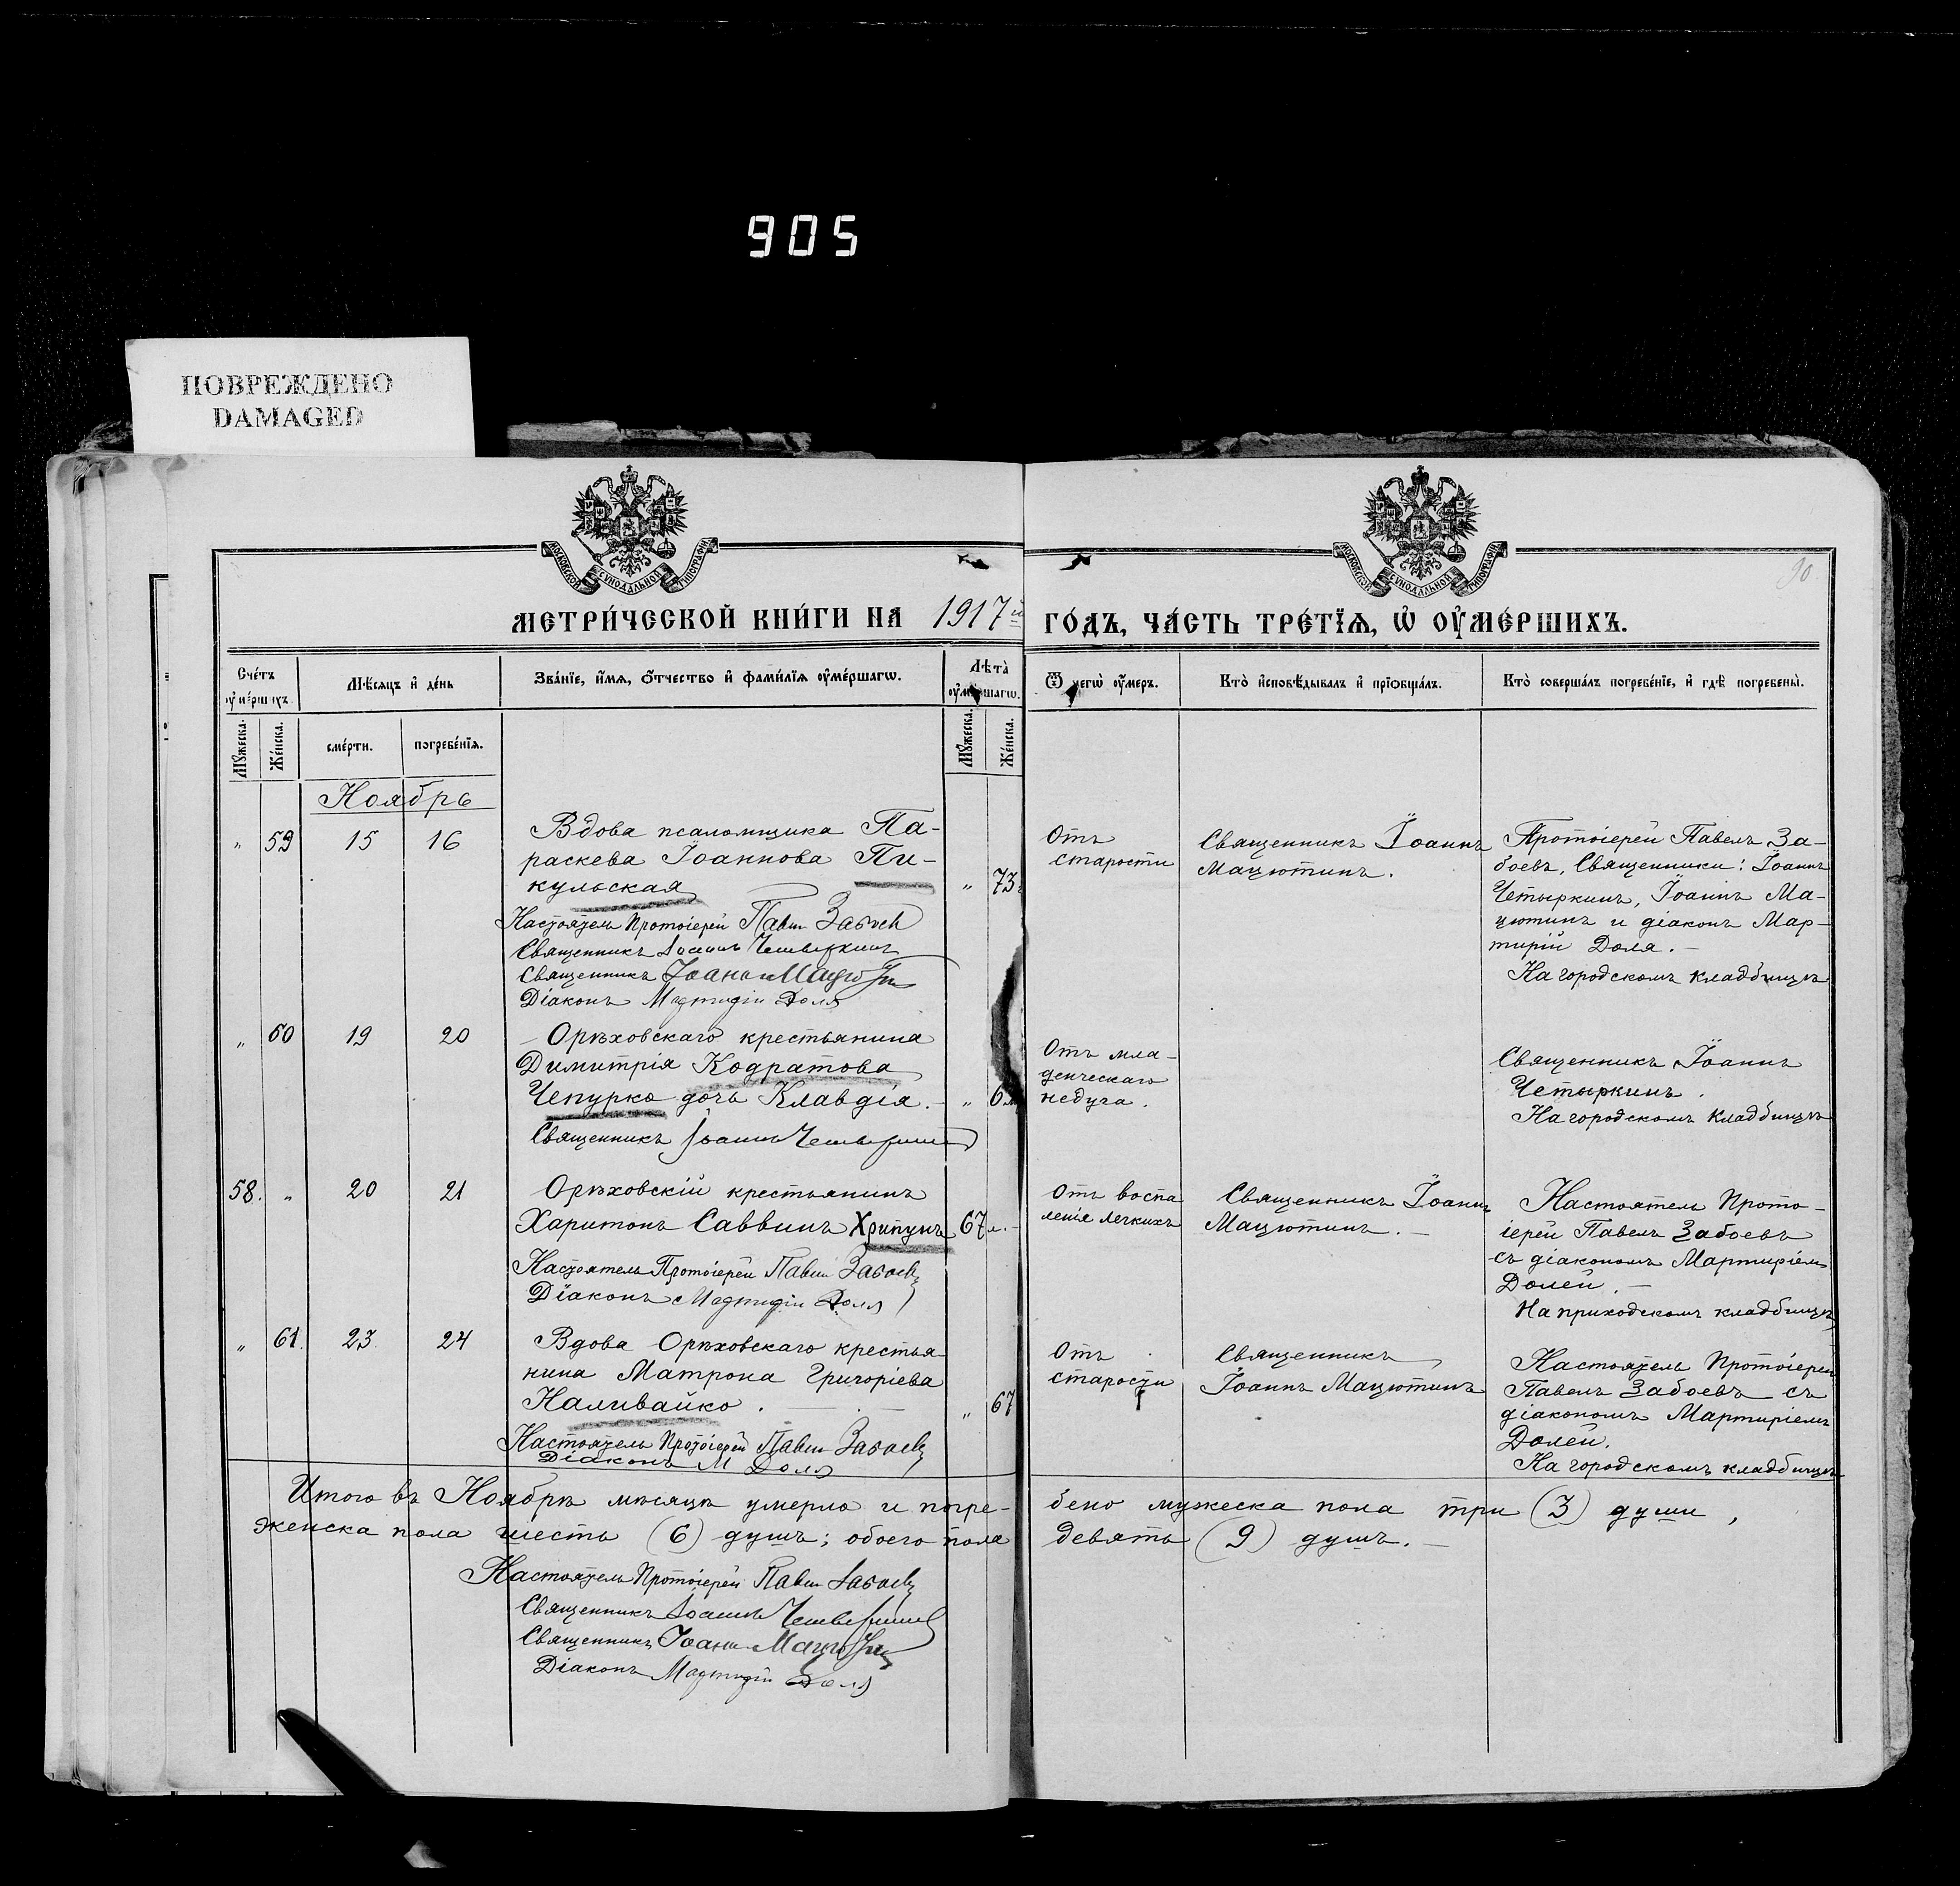 905
ПОВРЕЖДЕНО
DAMAGED
МОСКОВСКОЙ СѴНОДАЛЬНОЙ ТИПОГРАФІИ
МОСКОВСКОЙ СѴНОДАЛЬНОЙ ТИПОГРАФІИ
90
МЕТРИ́ЧЕСКОЙ КНИ́ГИ НА 1917й ГО́ДЪ, ЧА́СТЬ ТРЕ́ТЇѦ, Ѡ҆ ОУ҆МЕ́РШИХЪ.
Сче́тъ оу҆ме́ршихъ.
Мѣ́сѧцъ и҆ де́нь
Зва́нїе, и҆́мѧ, ѻ҆́тчество и҆ фами́лїѧ оу҆ме́ршагѡ.
Лѣ́та оу҆ме́ршагѡ.
Ѿ чегѡ̀ оу҆́меръ.
Кто̀ и҆сповѣ́дывалъ и҆ прїѡбща́лъ.
Кто̀ соверша́лъ погребе́нїе, и҆ гдѣ̀ погребены̀.
Мꙋ́жеска.
Же́нска.
сме́рти.
погребе́нїѧ.
Мꙋ́жеска.
Же́нска.
Ноябрь
" 59 15 16
Вдова псаломщика Па-
раскева Іоаннова Пи-
кульская
" 73
Настоятель Протоіерей Павелъ Забоевъ
Священникъ Іоаннъ Четыркинъ
Священникъ Іоаннъ Мацютинъ
Діаконъ Мартирій Доля
Отъ
старости
Священникъ Іоаннъ
Мацютинъ.
Протоіерей Павелъ За-
боевъ, Священники: Іоаннъ
Четыркинъ, Іоаннъ Ма-
цютинъ и діаконъ Мар-
тирій Доля.-
На городскомъ кладбищѣ
" 60 19 20
Орѣховскаго крестьянина
Димитрія Кодратова
Чепурко дочь Клавдія.
" 6м
Священникъ Іоаннъ Четыркинъ
Отъ мла-
денческаго
недуга.
Священникъ Іоаннъ
Четыркинъ.
На городскомъ кладбищѣ
58. " 20 21
Орѣховскій крестьянинъ
Харитонъ Саввинъ Хрипунъ
67 л.-
Настоятель Протоіерей Павелъ Забоевъ
Діаконъ Мартирій Доля
Отъ воспа
ленія легкихъ
Священникъ Іоаннъ
Мацютинъ.-
Настоятель Прото-
іерей Павелъ Забоевъ
съ діакономъ Мартиріемъ
Долей.-
На приходскомъ кладбищѣ
" 61. 23 24
Вдова Орѣховскаго крестья
нина Матрона Григоріева
Наливайко.
" 67
Настоятель Протоіерей Павелъ Забоевъ
Діаконъ М Доля
Отъ
старости
Священникъ
Іоаннъ Мацютинъ
Настоятель Протоіерей
Павелъ Забоевъ съ
діакономъ Мартиріемъ
Долей.
На городскомъ кладбищѣ
Итого въ Ноябрѣ мѣсяцѣ умерло и погре-бено мужеска пола три (3) души,
женска пола шесть (6) душъ; обоего пола девять (9) душъ.-
Настоятель Протоіерей Павелъ Забоевъ
Священникъ Іоаннъ Четыркинъ
Священникъ Іоаннъ Мацютинъ
Діаконъ Мартирій Доля